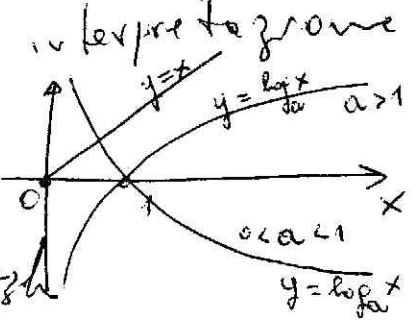 interpretazione
y=x
y=logₐx
a>1
0
1
x
0<a<1
y=logₐx